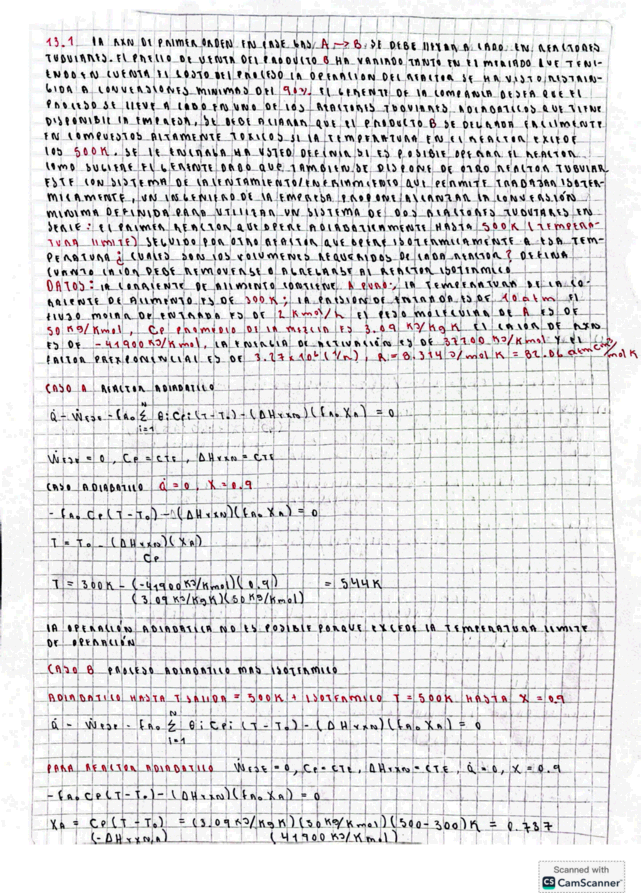 13.1 LA RXN DE PRIMER ORDEN EN FASE GAS A → B SE DEBE LLEVAR A CABO EN REACTORES
TUBULARES. EL PRECIO DE VENTA DEL PRODUCTO B HA VARIADO TANTO EN EL MERCADO QUE TENI-
ENDO EN CUENTA EL COSTO DEL PROCESO LA OPERACION DEL REACTOR SE HA VISTO RESTRIN-
GIDA A CONVERSIONES MINIMAS DEL 90%. EL GERENTE DE LA COMPAÑIA DESEA QUE EL
PROCESO SE LLEVE A CABO EN UNO DE LOS REACTORES TUBULARES ADIABATICOS QUE TIENE
DISPONIBLE LA EMPRESA, SE DEBE ACLARAR QUE EL PRODUCTO B SE DEGRADA FACILMENTE
EN COMPUESTOS ALTAMENTE TOXICOS SI LA TEMPERATURA EN EL REACTOR EXCEDE
LOS 500K. SE LE ENCARGA HA USTED DEFINIR SI ES POSIBLE OPERAR EL REACTOR
COMO SUGIERE EL GERENTE DADO QUE TAMBIEN SE DISPONE DE OTRO REACTOR TUBULAR
ESTE CON SISTEMA DE CALENTAMIENTO/ENFRIAMIENTO QUE PERMITE TRABAJAR ISOTER-
MICAMENTE, UN INGENIERO DE LA EMPRESA PROPONE ALCANZAR LA CONVERSIÓN
MINIMA DEFINIDA PARA UTILIZAR UN SISTEMA DE DOS REACTORES TUBULARES EN
SERIE: EL PRIMER REACTOR QUE OPERE ADIABATICAMENTE HASTA 500K (TEMPERA-
TURA LIMITE) SEGUIDO POR OTRO REACTOR QUE OPERE ISOTERMICAMENTE A ESA TEM-
PERATURA ¿ CUALES SON LOS VOLUMENES REQUERIDOS DE CADA REACTOR? DEFINA
CUANTO CALOR DEBE REMOVERSE O AGREGARSE AL REACTOR ISOTERMICO
DATOS: LA CORRIENTE DE ALIMENTO CONTIENE A PURO; LA TEMPERATURA DE LA CO-
RRIENTE DE ALIMENTO ES DE 300K; LA PRESION DE ENTRADA ES DE 10 atm EL
FLUJO MOLAR DE ENTRADA ES DE 2 Kmol/h EL PESO MOLECULAR DE A ES DE
50 Kg/Kmol, CP PROMEDIO DE LA MEZCLA ES 3.09 KJ/KgK EL CALOR DE RXN
ES DE -41900 KJ/Kmol, LA ENERGIA DE ACTIVACION ES DE 37200 KJ/Kmol Y EL
FACTOR PREXPONENCIAL ES DE 3.27x10⁶ (1/h), R = 8.314 J/mol K = 82.06 atm cm³/mol K
CASO A REACTOR ADIABATICO
Q̇ - ẆEJE - FA₀ Σ θi CPi (T-T₀) - (ΔHrxn)(FA₀ XA) = 0
N
i=1
ẆEJE = 0, CP = CTE, ΔHrxn = CTE
CASO ADIABATICO Q̇ = 0, X = 0.9
- FA₀ CP (T-T₀) - (ΔHrxn)(FA₀ XA) = 0
T = T₀ - (ΔHrxn)(XA)
CP
T = 300K - (-41900 KJ/Kmol)(0.9) = 544K
(3.09 KJ/KgK)(50 Kg/Kmol)
LA OPERACIÓN ADIABATICA NO ES POSIBLE PORQUE EXCEDE LA TEMPERATURA LIMITE
DE OPERACIÓN
CASO B PROCESO ADIABATICO MAS ISOTERMICO
ADIABATICO HASTA T SALIDA = 500K + ISOTERMICO T = 500K HASTA X = 0.9
Q̇ - ẆEJE - FA₀ Σ θi CPi (T-T₀) - (ΔHrxn)(FA₀ XA) = 0
N
i=1
PARA REACTOR ADIABATICO ẆEJE = 0, CP = CTE, ΔHrxn = CTE, Q̇ = 0, X = 0.9
- FA₀ CP (T-T₀) - (ΔHrxn)(FA₀ XA) = 0
XA = CP (T-T₀) = (3.09 KJ/KgK)(50 Kg/Kmol)(500-300)K = 0.737
(-ΔHrxn,A) (41900 KJ/Kmol)
Scanned with
CS CamScanner